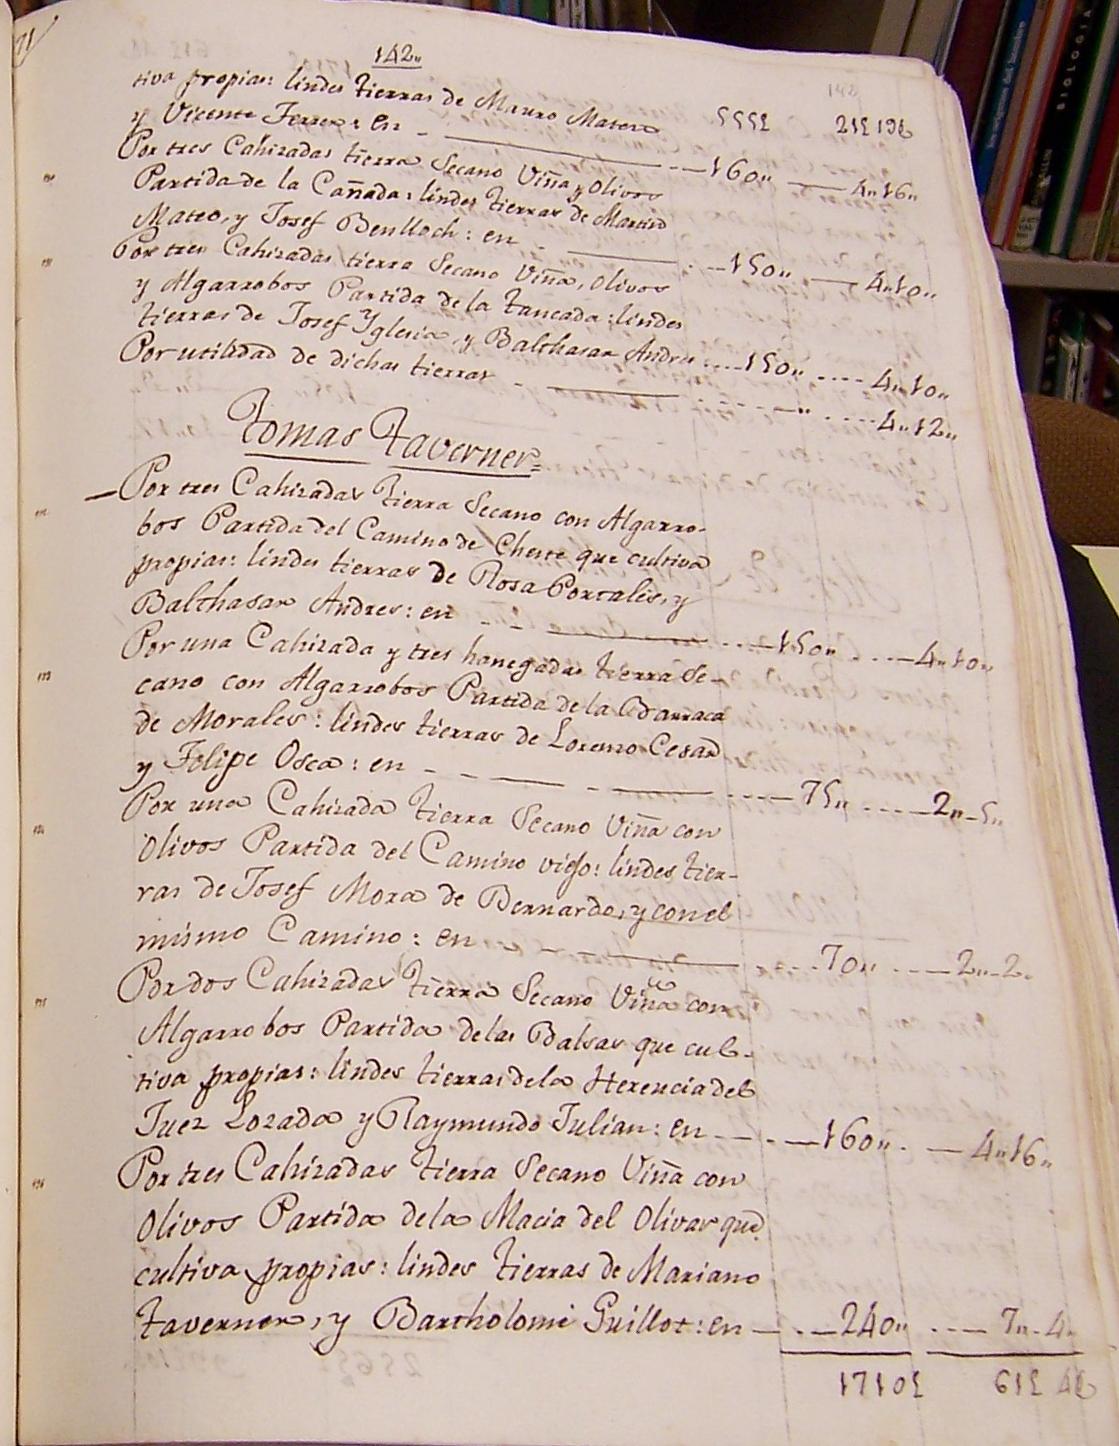 142"
tiva propias: lindes tierras de Mauro Mateo
y Vicente Ferrer: en 160" 4" 16"
Por tres Cahizadas tierra Secano Viña y Olivos
Partida de la Cañada: lindes tierras de Martin
Mateo, y Josef Benlloch: en 150" 4" 10"
Por tres Cahizadas tierra Secano Viña, Olivos
y Algarrobos Partida de la Tancada: lindes
tierras de Josef Yglesia, y Balthasar Andres 150" 4" 10"
Por utilidad de dichas tierras " 4" 12"
Tomas Taverner=
Por tres Cahizadas tierra Secano con Algarro-
bos Partida del Camino de Cheste que cultiva
propias: lindes tierras de Rosa Portales, y
Balthasar Andres: en 150" 4" 10"
Por una Cahizada y tres hanegadas tierra Se-
cano con Algarrobos Partida de la Barraca
de Morales: lindes tierras de Lorenzo Cesar
y Felipe Osca: en 75" 2" 5"
Por una Cahizada tierra Secano Viña con
Olivos Partida del Camino viejo: lindes tier-
ras de Josef Mora de Bernardo, y con el
mismo Camino: en 70" 2" 2"
Por dos Cahizadas tierra Secano Viña con
Algarrobos Partida de las Balsas que cul-
tiva propias: lindes tierras de la Herencia del
Juez Lozada y Raymundo Julian: en 160" 4" 16"
Por tres Cahizadas tierra Secano Viña con
Olivos Partida de la Macia del Olivar que
cultiva propias: lindes tierras de Mariano
Taverner, y Bartholome Guillot: en 240" 7" 4"
BIOLOGIA